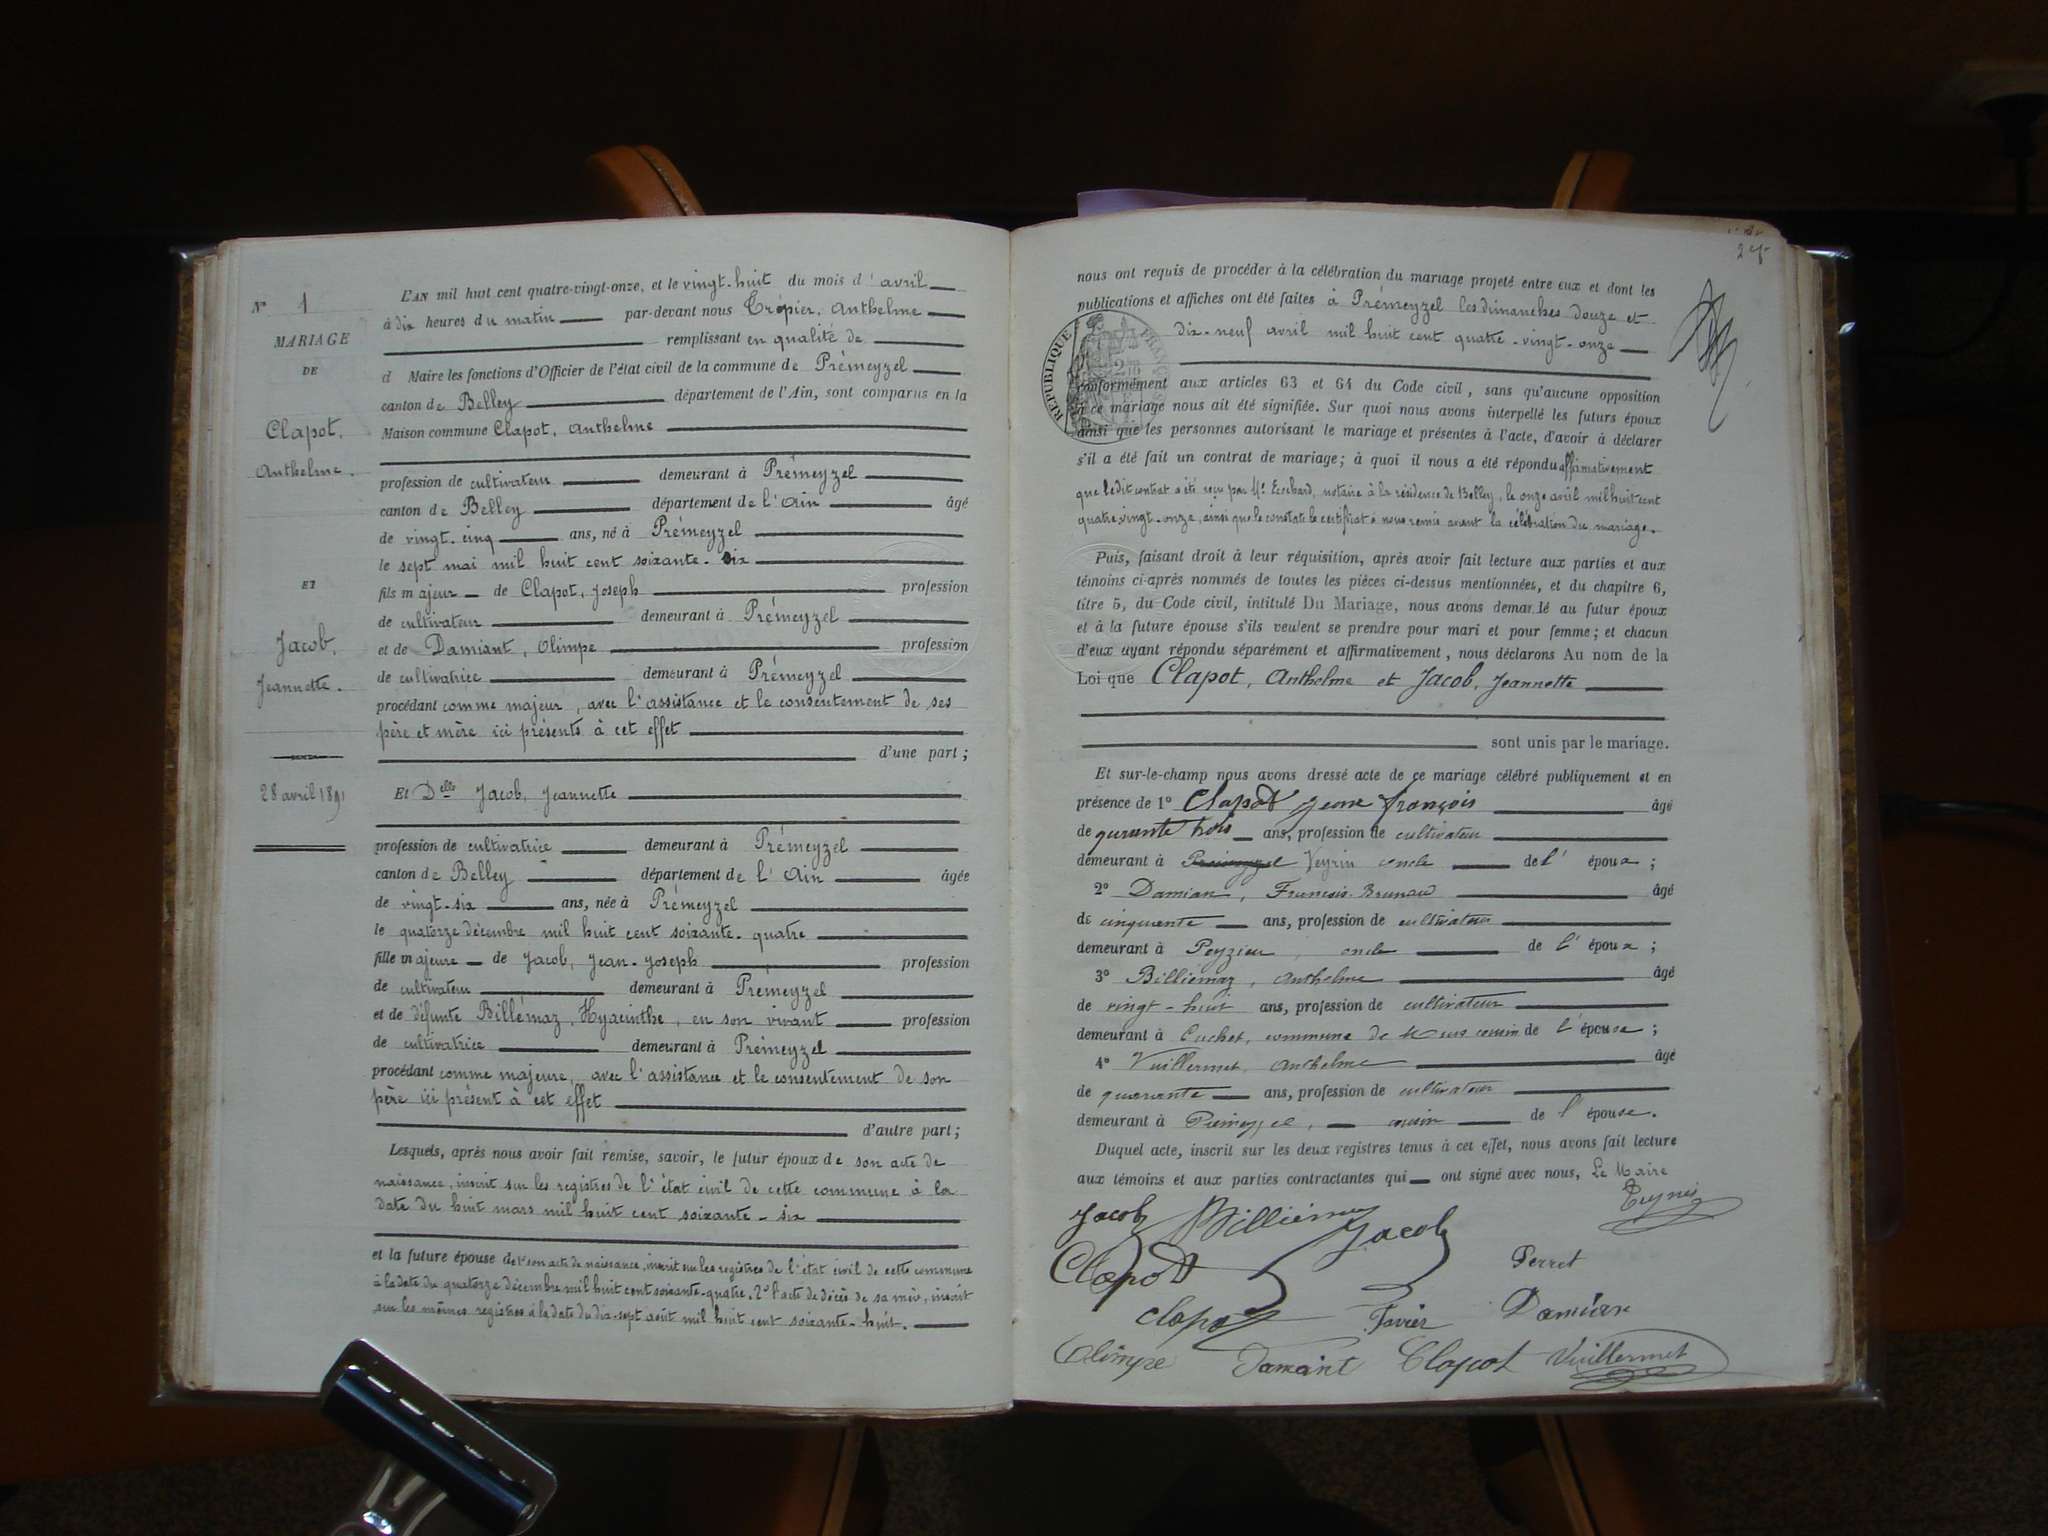 N° 1
MARIAGE
DE
Clapot,
Anthelme.
ET
Jacob,
Jeannette.
28 avril 1891
L'AN mil huit cent quatre-vingt-onze, et le vingt-huit du mois d'avril
à dix heures du matin par-devant nous Trépier, Anthelme
remplissant en qualité de
d Maire les fonctions d'Officier de l'état civil de la commune de Prémeyzel
canton de Belley département de l'Ain, sont comparus en la
Maison commune Clapot, Anthelme
profession de cultivateur demeurant à Prémeyzel
canton de Belley département de l'Ain âgé
de vingt-cinq ans, né à Prémeyzel
le sept mai mil huit cent soixante-six
fils majeur de Clapot, Joseph profession
de cultivateur demeurant à Prémeyzel
et de Damiant, Olimpe profession
de cultivatrice demeurant à Prémeyzel
procédant comme majeur, avec l'assistance et le consentement de ses
père et mère ici présents à cet effet
d'une part;
Et Delle Jacob, Jeannette
profession de cultivatrice demeurant à Prémeyzel
canton de Belley département de l'Ain âgée
de vingt-six ans, née à Prémeyzel
le quatorze décembre mil huit cent soixante-quatre
fille majeure de Jacob, Jean-Joseph profession
de cultivateur demeurant à Prémeyzel
et de défunte Billémaz, Hyacinthe, en son vivant profession
de cultivatrice demeurant à Prémeyzel
procédant comme majeure, avec l'assistance et le consentement de son
père ici présent à cet effet
d'autre part;
Lesquels, après nous avoir fait remise, savoir, le futur époux de son acte de
naissance, inscrit sur les registres de l'état civil de cette commune à la
date du huit mars mil huit cent soixante-six
et la future épouse de 1° son acte de naissance, inscrit sur les registres de l'état civil de cette commune
à la date du quatorze décembre mil huit cent soixante-quatre. 2° l'acte de décès de sa mère, inscrit
sur les mêmes registres à la date du dix-sept août mil huit cent soixante-huit.
nous ont requis de procéder à la célébration du mariage projeté entre eux et dont les
publications et affiches ont été faites à Prémeyzel les dimanches douze et
dix-neuf avril mil huit cent quatre-vingt-onze
RÉPUBLIQUE FRANÇAISE
conformément aux articles 63 et 64 du Code civil, sans qu'aucune opposition
à ce mariage nous ait été signifiée. Sur quoi nous avons interpellé les futurs époux
ainsi que les personnes autorisant le mariage et présentes à l'acte, d'avoir à déclarer
s'il a été fait un contrat de mariage; à quoi il nous a été répondu affirmativement
que ledit contrat a été reçu par Me notaire à la résidence de Belley, le onze avril mil huit cent
quatre-vingt-onze, ainsi que le constate le certificat à nous remis avant la célébration du mariage.
Puis, faisant droit à leur réquisition, après avoir fait lecture aux parties et aux
témoins ci-après nommés de toutes les pièces ci-dessus mentionnées, et du chapitre 6,
titre 5, du Code civil, intitulé Du Mariage, nous avons demandé au futur époux
et à la future épouse s'ils veulent se prendre pour mari et pour femme; et chacun
d'eux ayant répondu séparément et affirmativement, nous déclarons Au nom de la
Loi que Clapot, Anthelme et Jacob, Jeannette
sont unis par le mariage.
Et sur-le-champ nous avons dressé acte de ce mariage célébré publiquement et en
présence de 1° Clapot Jean françois âgé
de qurante trois ans, profession de cultivateur
demeurant à Prémeyzel Veyrin oncle de l'époux;
2° Damian, François-Brunau âgé
de cinquante ans, profession de cultivateur
demeurant à Peyzieu, oncle de l'époux;
3° Billiémaz, Anthelme âgé
de vingt-huit ans, profession de cultivateur
demeurant à Cuchet, commune de cousin de l'épouse;
4° Vuillermet, Anthelme âgé
de quarante ans, profession de cultivateur
demeurant à Prémeyzel, cousin de l'épouse.
Duquel acte, inscrit sur les deux registres tenus à cet effet, nous avons fait lecture
aux témoins et aux parties contractantes qui ont signé avec nous, Le Maire
Jacob Billiémaz Jacob
Clapot Perret
Clapot Favier Damian
Olimpe Damaint Clapot Vuillermet